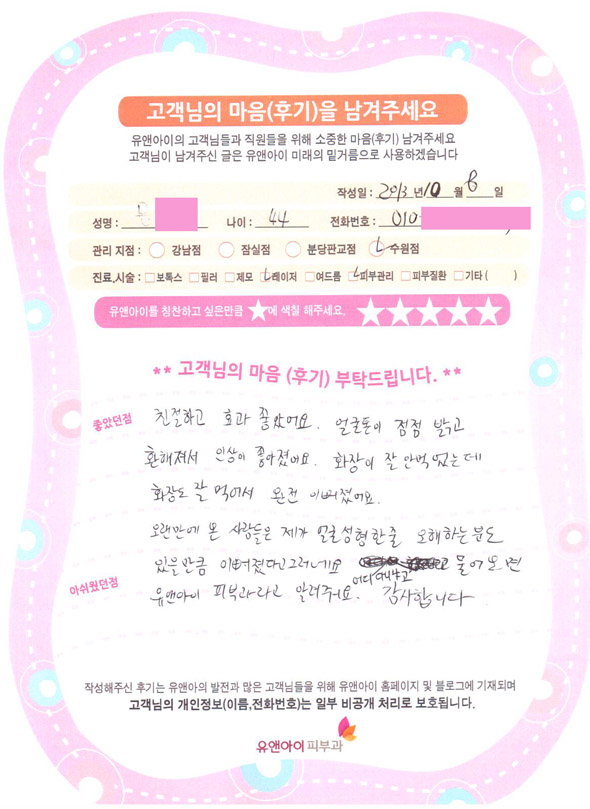 고객님의 마음(후기)을 남겨주세요
유앤아이의 고객님들과 직원들을 위해 소중한 마음(후기) 남겨주세요
고객님이 남겨주신 글은 유앤아이 미래의 밑거름으로 사용하겠습니다
작성일 : 2013 년 10 월 8 일
성명 : 나이 : 44 전화번호 : 010-
관리 지점 : 강남점 잠실점 분당판교점 수원점
진료,시술 : 보톡스 필러 제모 레이저 여드름 피부관리 피부질환 기타 ( )
유앤아이를 칭찬하고 싶은만큼 ★에 색칠 해주세요. ★★★★★
** 고객님의 마음 (후기) 부탁드립니다. **
좋았던점 친절하고 효과 좋았어요. 얼굴톤이 점점 밝고
환해져서 인상이 좋아졌어요. 화장이 잘 안먹었는데
화장도 잘 먹어서 완전 이뻐졌어요.
오랜만에 본 사람들은 제가 얼굴성형한줄 오해하는분도
있을만큼 이뻐졌다고그러네요 어디 다니냐고 물어보면
아쉬웠던점 유앤아이 피부과라고 알려주어요. 감사합니다
작성해주신 후기는 유앤아의 발전과 많은 고객님들을 위해 유앤아이 홈페이지 및 블로그에 기재되며
고객님의 개인정보(이름,전화번호)는 일부 비공개 처리로 보호됩니다.
유앤아이피부과